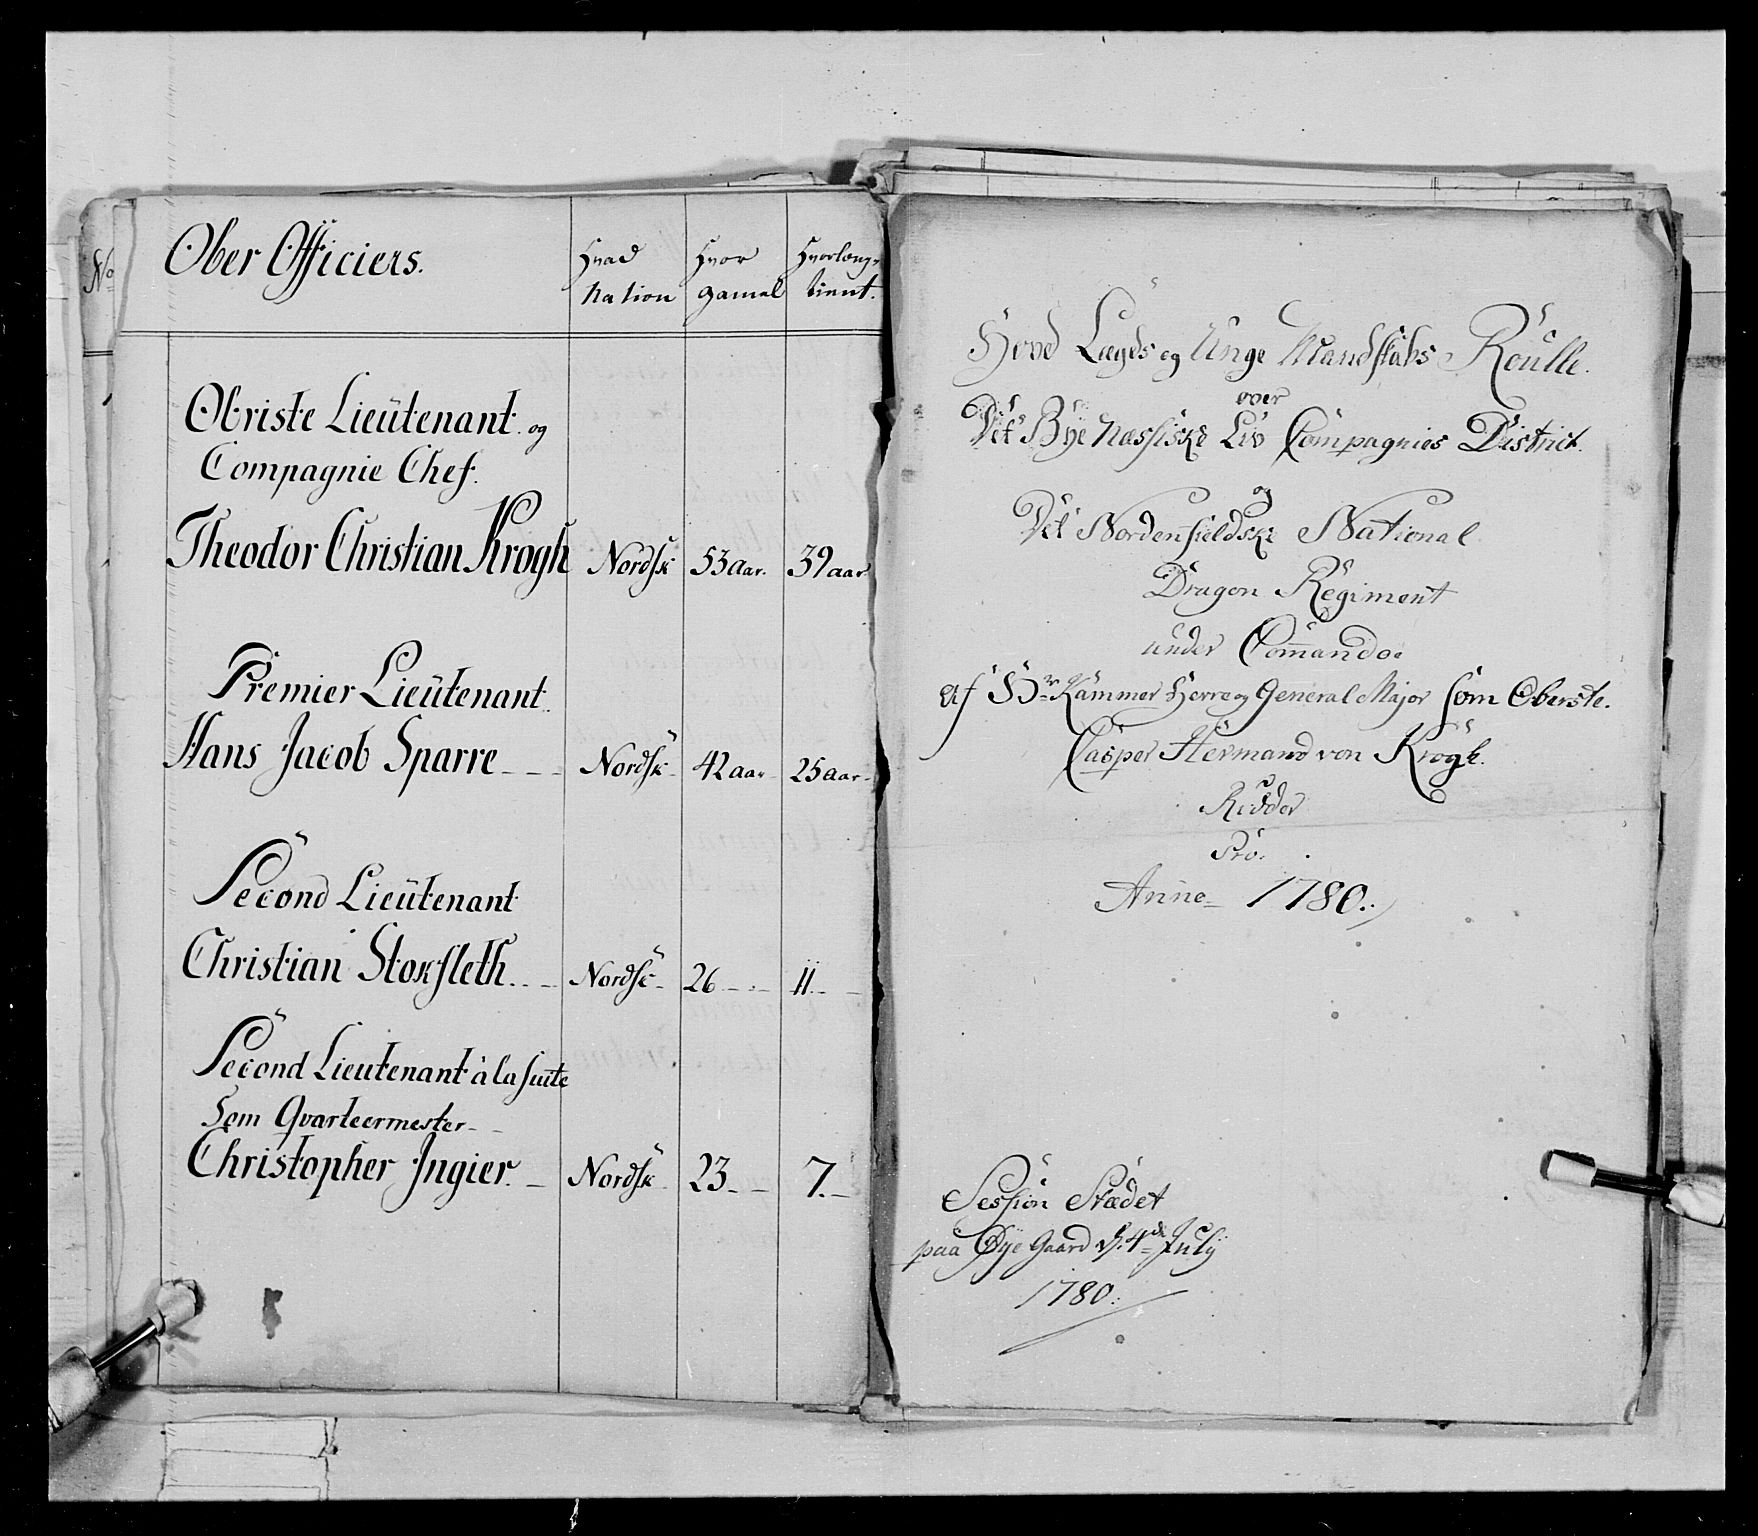 No
Ober Officiers.
Hvad Nation
Hvor gamel
Hvorlæng tient.
Obriste Lieütenant og
Compagnie Chef.
Theodor Christian Krogh Nordsk 53 aar. 39 aar
Premier Lieütenant
Hans Jacob Sparre Nordsk 42 aar 25 aar
Second Lieütenant
Christian Stokfleth Nordsk 26 11
Second Lieutenant à la suite
Som Qvarteermester
Christopher Ingier. Nordsk 23 7
Hoved Lægds og Unge Mandskabs Roülle.
over
Det Bye Næssiske Liv Compagnies District.
og
Det Nordenfieldske National
Dragon Regiment
under Com̄ando
af Hr Kammer Herre og General Major som Oberste.
Casper Hermand von Krogh.
Ridder
Pro.
Anno 1780.
Session Stædet
paa Øye Gaard d. 4de July
1780.